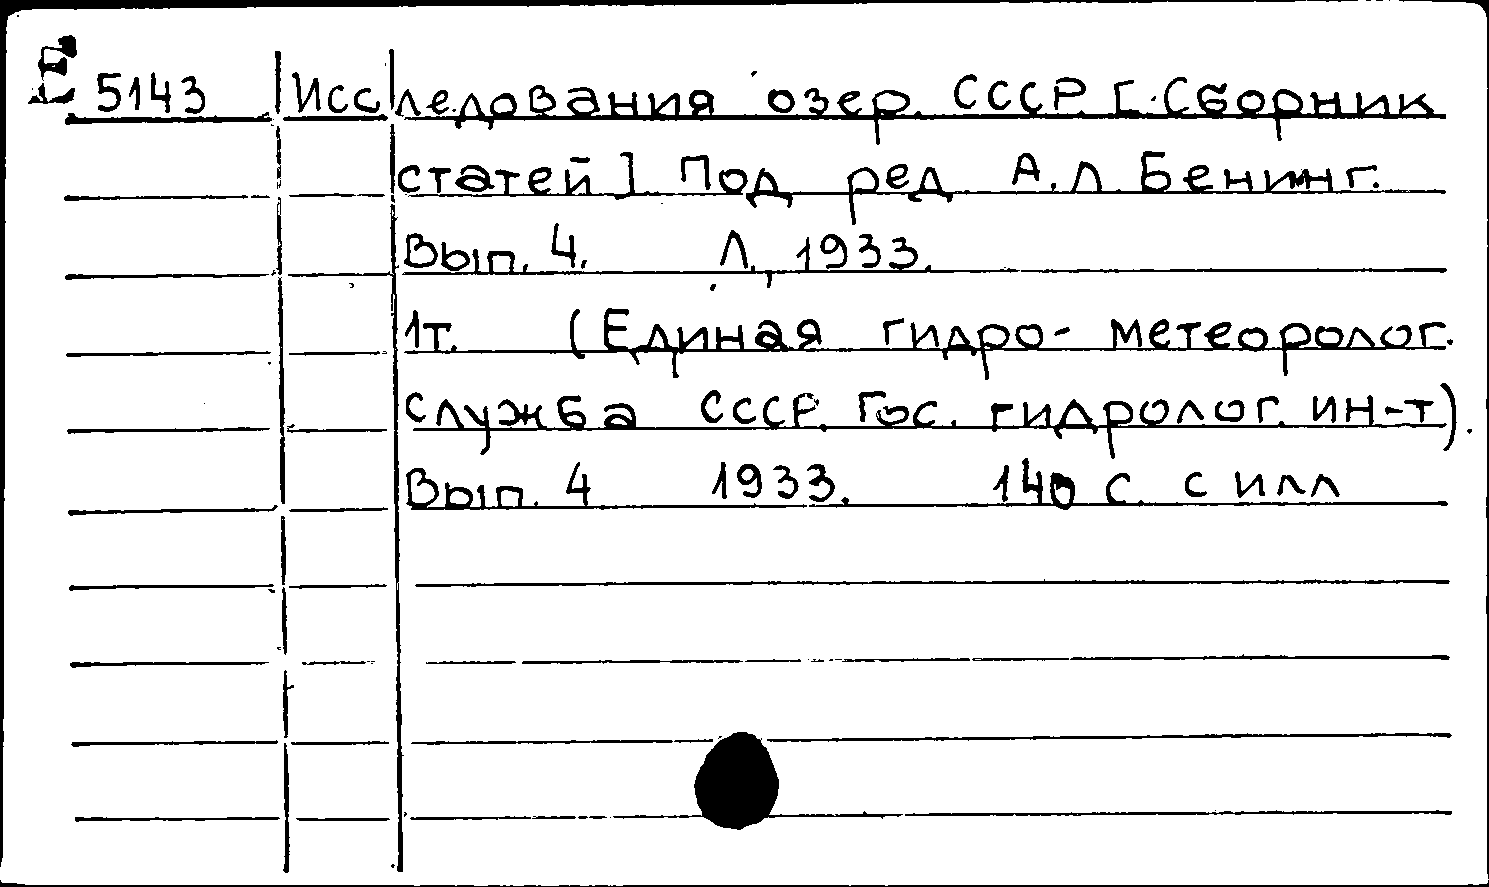 Е 5143 Исследования озер. СССР. [.Сборник
статей] Под ред А.Л Бенинг.
Вып. 4. Л., 1933.
1т. (Единая гидро- метеоролог.
служба СССР. Гос. гидролог. ин-т).
Вып. 4 1933. 140 с. с илл